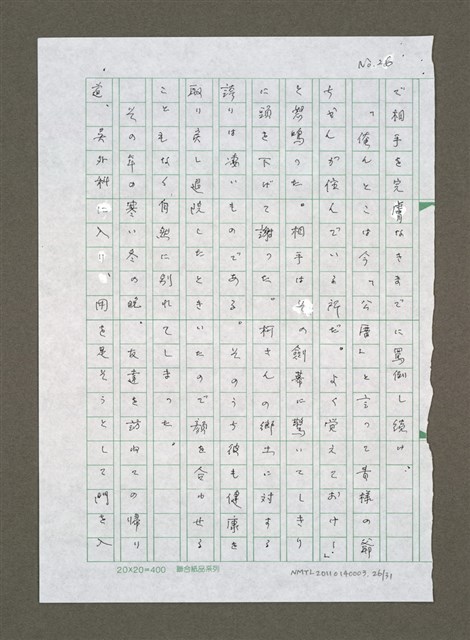 No. 26
で相手を完膚なきまでに罵倒し続け、
「俺んとこは今「公厝」と言って貴様の爺
ちゃんが住んでいる所だ。よく覚えておけ！」
と怒鳴った。相手はその剣幕に驚いてしきり
に頭を下げて謝った。柯さんの郷土に対する
誇りは凄いものである。そのうち彼も健康を
取り戻し退院したときいたので顔を合わせる
こともなく自然に別れてしまった。
その年の寒い冬の晩、友達を訪ねての帰り
道、吳外科に入り、用を足そうとして門を入
20×20=400 聯合紙品系列
NMTL20110140003. 26/31